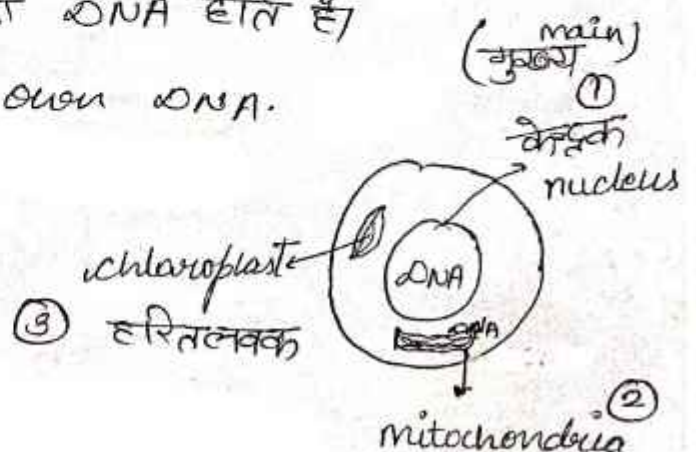 DNA होते हैं।
own DNA.
(मुख्य main)
①
केन्द्रक
nucleus
chloroplast
DNA
③ हरितलवक
DNA
②
mitochondria